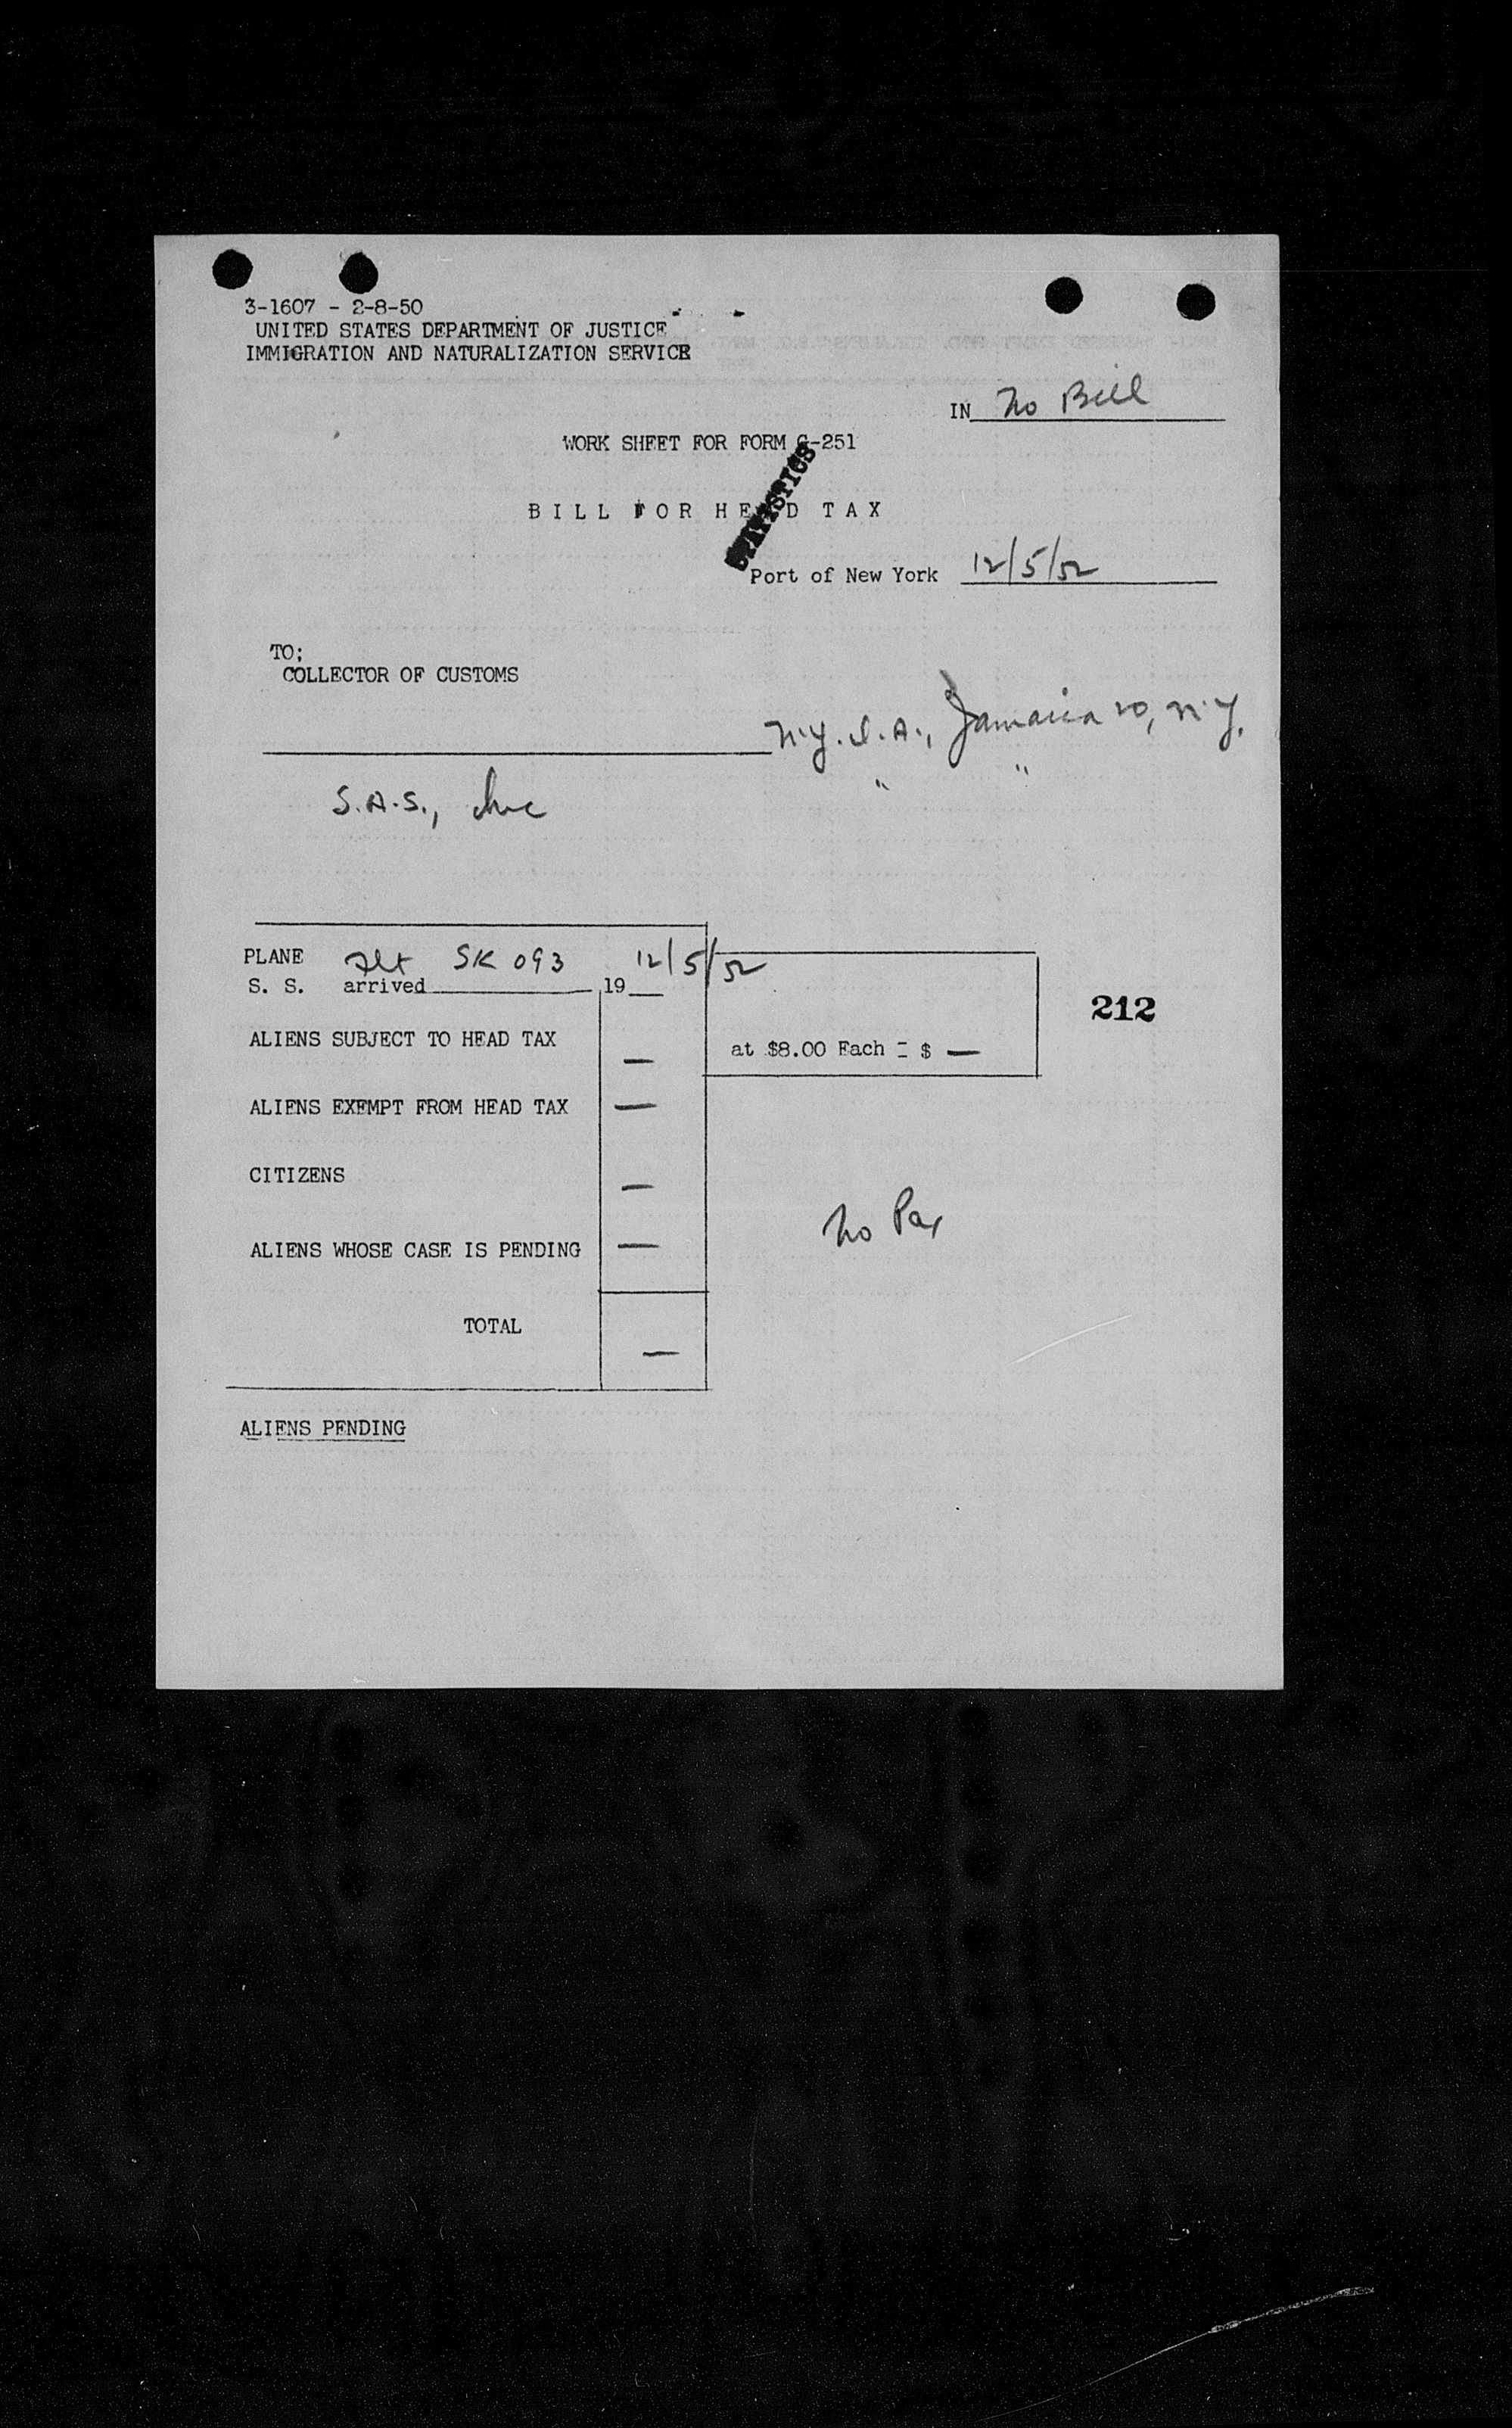 3-1607 - 2-8-50
UNITED STATES DEPARTMENT OF JUSTICE
IMMIGRATION AND NATURALIZATION SERVICE
IN No Bill
WORK SHEET FOR FORM G-251
STATISTICS
BILL FOR HEAD TAX
Port of New York 12/5/52
TO;
COLLECTOR OF CUSTOMS
N.Y.I.A., Jamaica 20, N.Y.
" "
S.A.S., Inc
PLANE Flt SK 093 12/5/52
S. S. arrived 19
212
ALIENS SUBJECT TO HEAD TAX —
at $8.00 Each = $ —
ALIENS EXEMPT FROM HEAD TAX —
CITIZENS —
No Pax
ALIENS WHOSE CASE IS PENDING —
TOTAL —
ALIENS PENDING